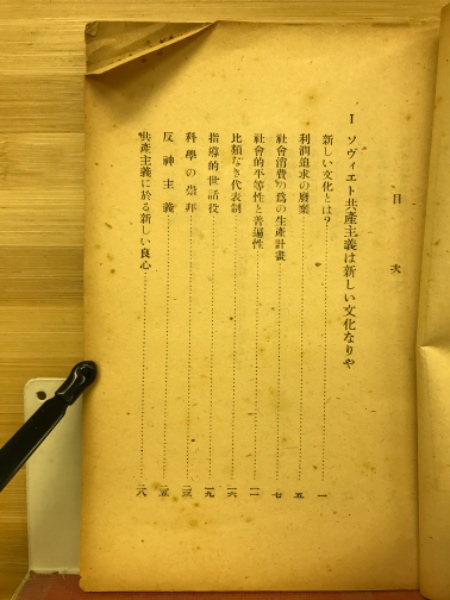 目次
I ソヴィエト共産主義は新しい文化なりや
新しい文化とは？……一
利潤追求の廢棄……五
社會消費の爲の生産計畫……七
社會的平等性と普遍性……一一
比類なき代表制……一六
指導的世話役……一九
科學の崇拜……二三
反神主義……二五
共產主義に於る新しい良心……二八